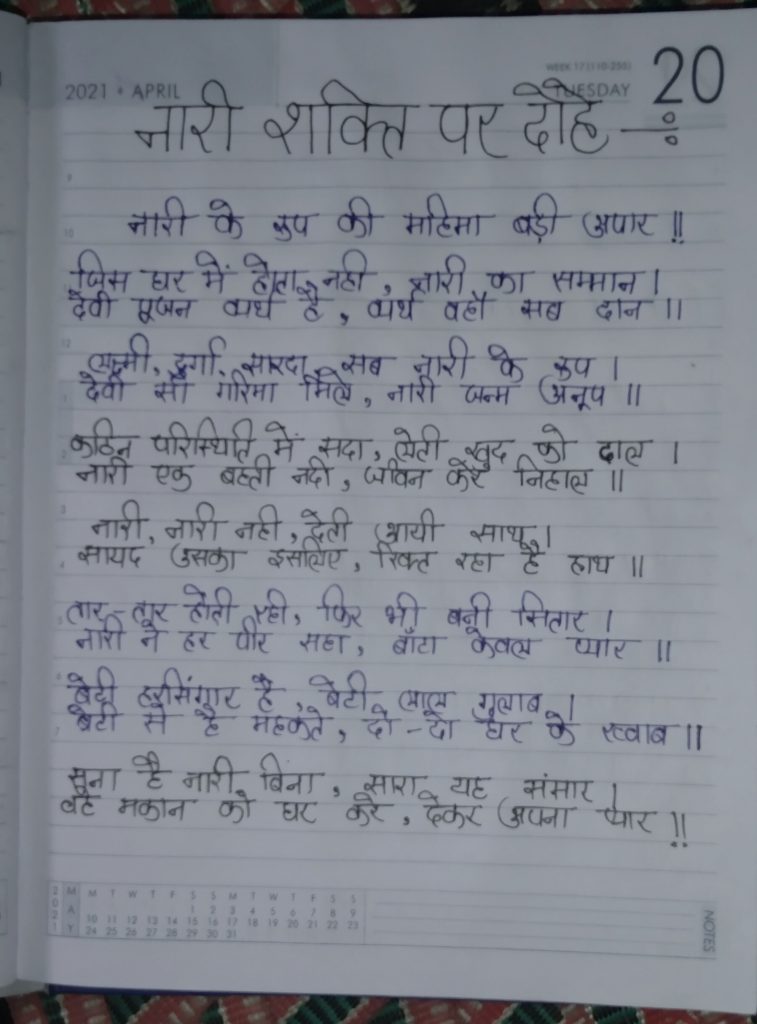 WEEK 17 (110-255)
2021 • APRIL
TUESDAY
20
नारी शक्ति पर दोहे —:
9
10
नारी के रूप की महिमा बड़ी अपार !!
जिस घर में होता नहीं, नारी का सम्मान।
देवी पूजन व्यर्थ है, व्यर्थ वहाँ सब दान ॥
12
लक्ष्मी, दुर्गा, सारदा, सब नारी के रूप।
देवी सी गरिमा मिले, नारी जन्म अनूप ॥
कठिन परिस्थिति में सदा, लेती खुद को ढाल।
नारी एक बहती नदी, जीवन करे निहाल ॥
नारी, नारी नही, देती आयी साथ।
सायद उसका इसलिए, रिक्त रहा है हाथ ॥
तार-तार होती रही, फिर भी बनी सितार।
नारी ने हर पीर सहा, बाँटा केवल प्यार ॥
बेटी हरसिंगार है, बेटी लाल गुलाब।
बेटी से है महकते, दो-दो घर के ख्वाब ॥
सूना है नारी बिना, सारा यह संसार।
वह मकान को घर करे, देकर अपना प्यार !!
2021 MAY
M T W T F S S M T W T F S S
1 2 3 4 5 6 7 8 9
10 11 12 13 14 15 16 17 18 19 20 21 22 23
24 25 26 27 28 29 30 31
NOTES